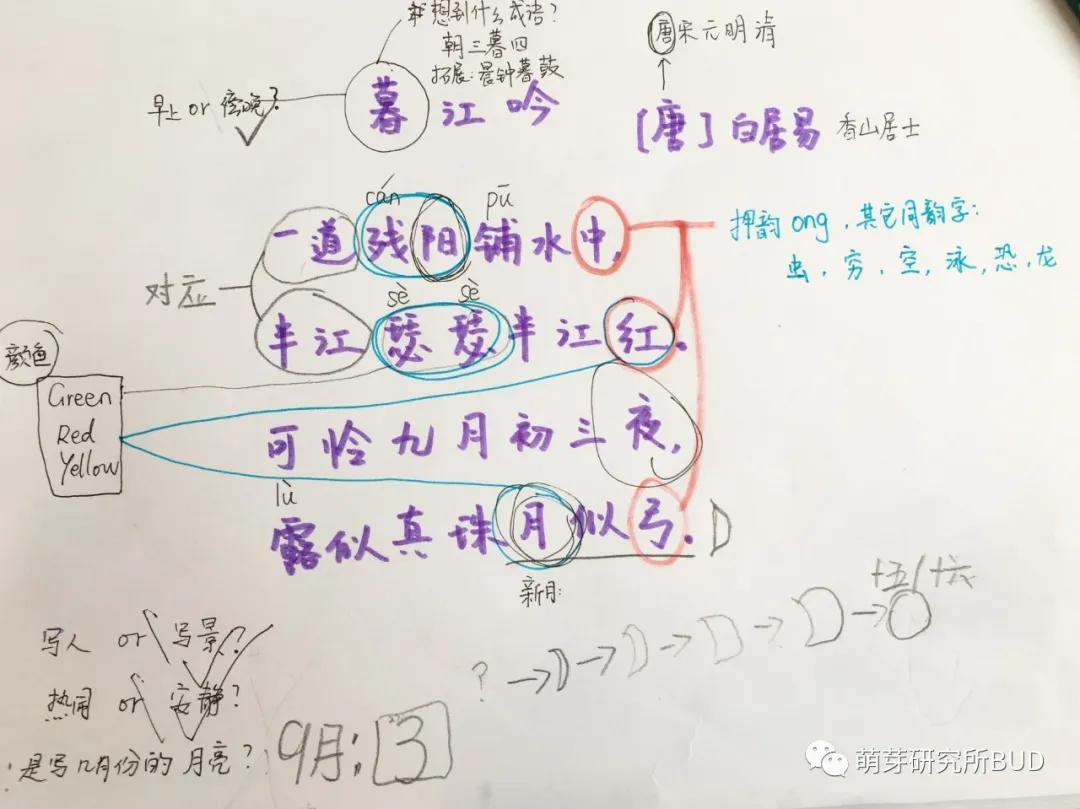 我想到什么成语？
朝三暮四
拓展：晨钟暮鼓
唐宋元明清
早上or傍晚？
暮江吟
[唐]白居易 香山居士
cán pū
一道残阳铺水中，
押韵ong，其它同韵字：
虫，穷，空，泳，恐，龙
对应
sè sè
半江瑟瑟半江红。
颜色
Green
Red
Yellow
可怜九月初三夜，
lù
露似真珠月似弓。
新月：
十五/十六
？
写人 or 写景？
热闹 or 安静？
是写几月份的月亮？
9月；3
萌芽研究所BUD